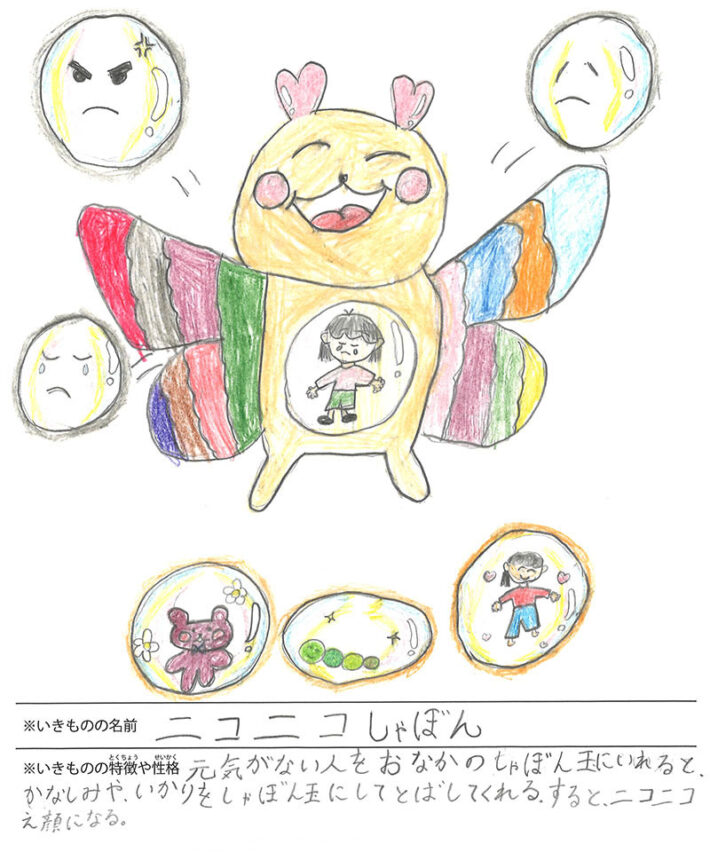 ※いきものの名前 ニコニコしゃぼん
とくちょう せいかく
※いきものの特徴や性格 元気がない人をおなかのしゃぼん玉にいれると、
かなしみや、いかりをしゃぼん玉にしてとばしてくれる。すると、ニコニコ
え顔になる。